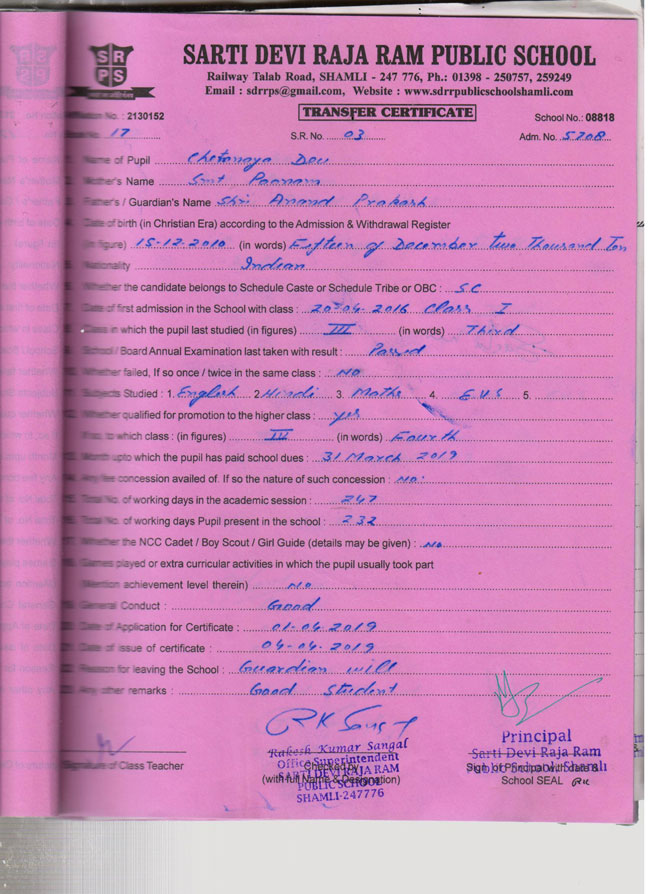 SRPS
SARTI DEVI RAJA RAM PUBLIC SCHOOL
Railway Talab Road, SHAMLI - 247 776, Ph.: 01398 - 250757, 259249
Email : sdrrps@gmail.com, Website : www.sdrrpublicschoolshamli.com
TRANSFER CERTIFICATE
School No.: 08818
No. : 2130152
No. 17 S.R. No. 03 Adm. No. 5208
Name of Pupil Chetanaya Dev
Mother's Name Smt Poonam
Father's / Guardian's Name Shri Anand Prakash
Date of birth (in Christian Era) according to the Admission & Withdrawal Register
(in figure) 15-12-2010 (in words) Fifteen of December two Thousand Ten
Nationality Indian
Whether the candidate belongs to Schedule Caste or Schedule Tribe or OBC : SC
Date of first admission in the School with class : 20-04-2016 Class I
Class in which the pupil last studied (in figures) III (in words) Third
School / Board Annual Examination last taken with result : Passed
Whether failed, If so once / twice in the same class : NO
Subjects Studied : 1. English 2. Hindi 3. Maths 4. EVS 5.
Whether qualified for promotion to the higher class : yes
If so, to which class : (in figures) IV (in words) Fourth
Month upto which the pupil has paid school dues : 31 March 2019
Any fee concession availed of. If so the nature of such concession : No
Total No. of working days in the academic session : 247
Total No. of working days Pupil present in the school : 232
Whether the NCC Cadet / Boy Scout / Girl Guide (details may be given) : No
Games played or extra curricular activities in which the pupil usually took part
(Mention achievement level therein) No
General Conduct : Good
Date of Application for Certificate : 01-04-2019
Date of issue of certificate : 04-04-2019
Reason for leaving the School : Guardian will
Any other remarks : Good Student
Signature of Class Teacher
Rakesh Kumar Sangal
Office Superintendent
Checked by
SARTI DEVI RAJA RAM
(with full Name & Designation)
PUBLIC SCHOOL
SHAMLI-247776
Principal
Sarti Devi Raja Ram
Public School, Shamli
Sign of Principal with date &
School SEAL